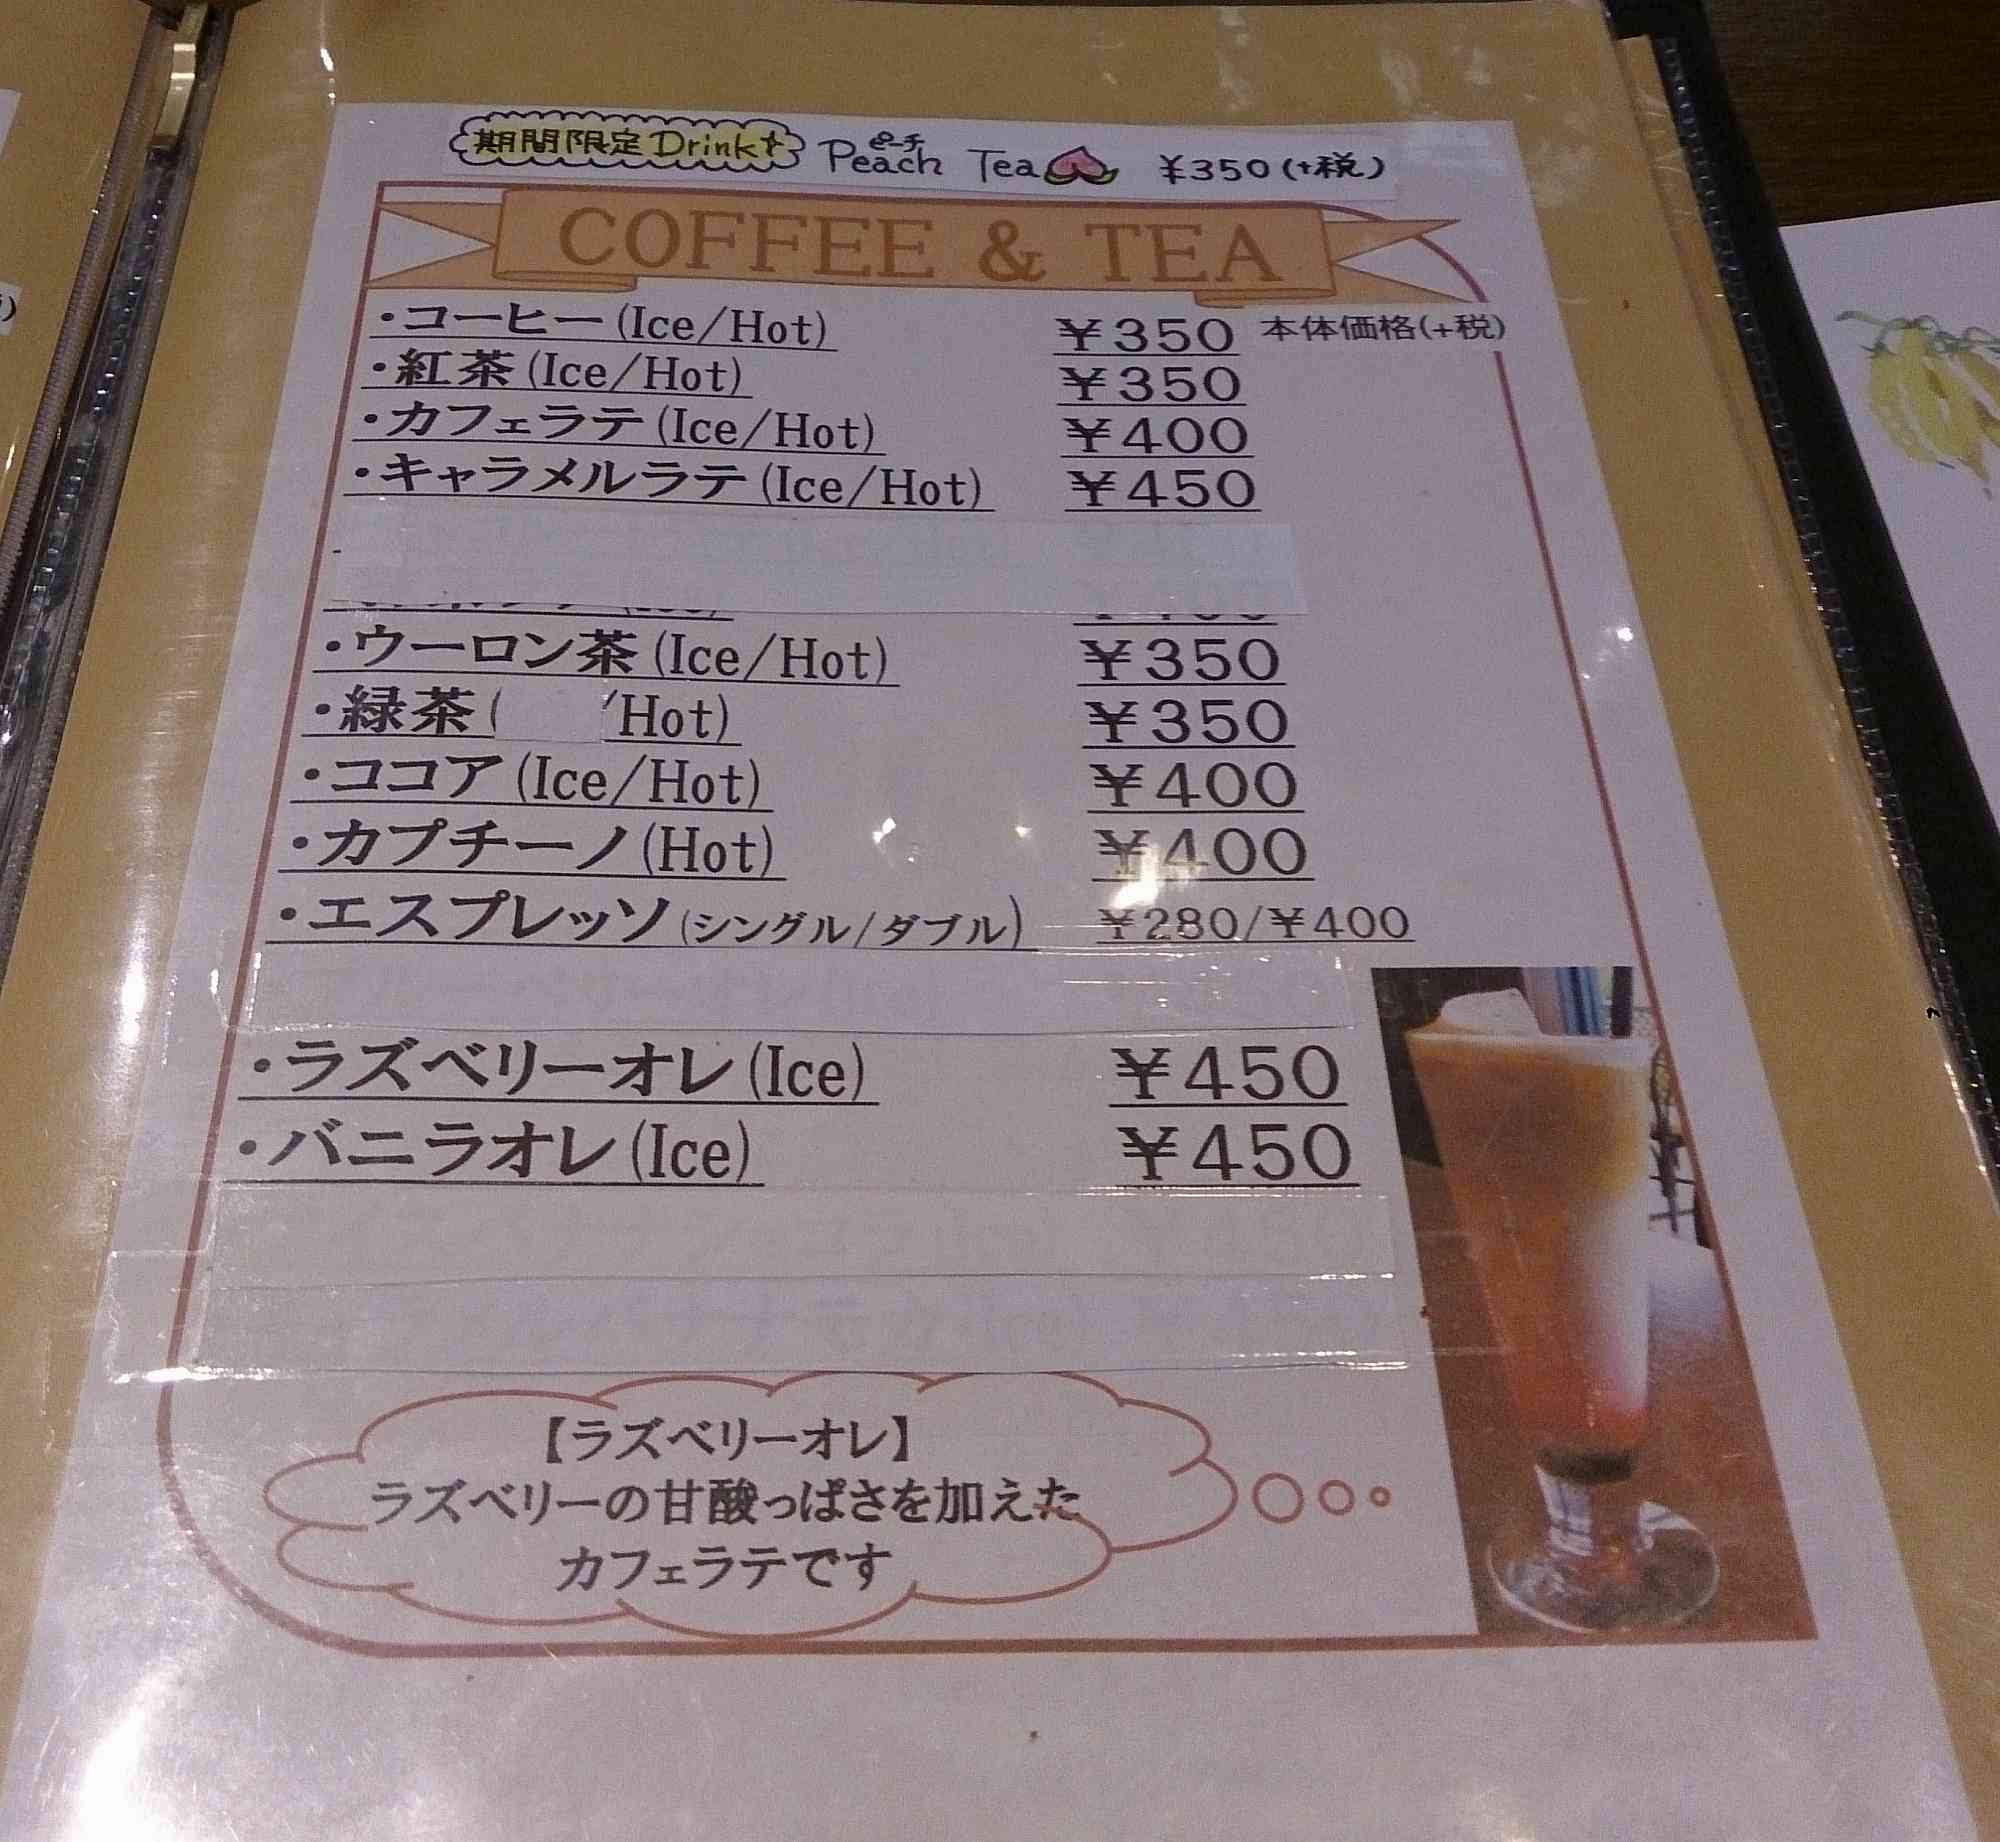 期間限定Drink ピーチ Peach Tea ¥350(+税)
COFFEE & TEA
・コーヒー(Ice/Hot) ¥350 本体価格(+税)
・紅茶(Ice/Hot) ¥350
・カフェラテ(Ice/Hot) ¥400
・キャラメルラテ(Ice/Hot) ¥450
・ウーロン茶(Ice/Hot) ¥350
・緑茶( Hot) ¥350
・ココア(Ice/Hot) ¥400
・カプチーノ(Hot) ¥400
・エスプレッソ(シングル/ダブル) ¥280/¥400
・ラズベリーオレ(Ice) ¥450
・バニラオレ(Ice) ¥450
【ラズベリーオレ】
ラズベリーの甘酸っぱさを加えた
カフェラテです